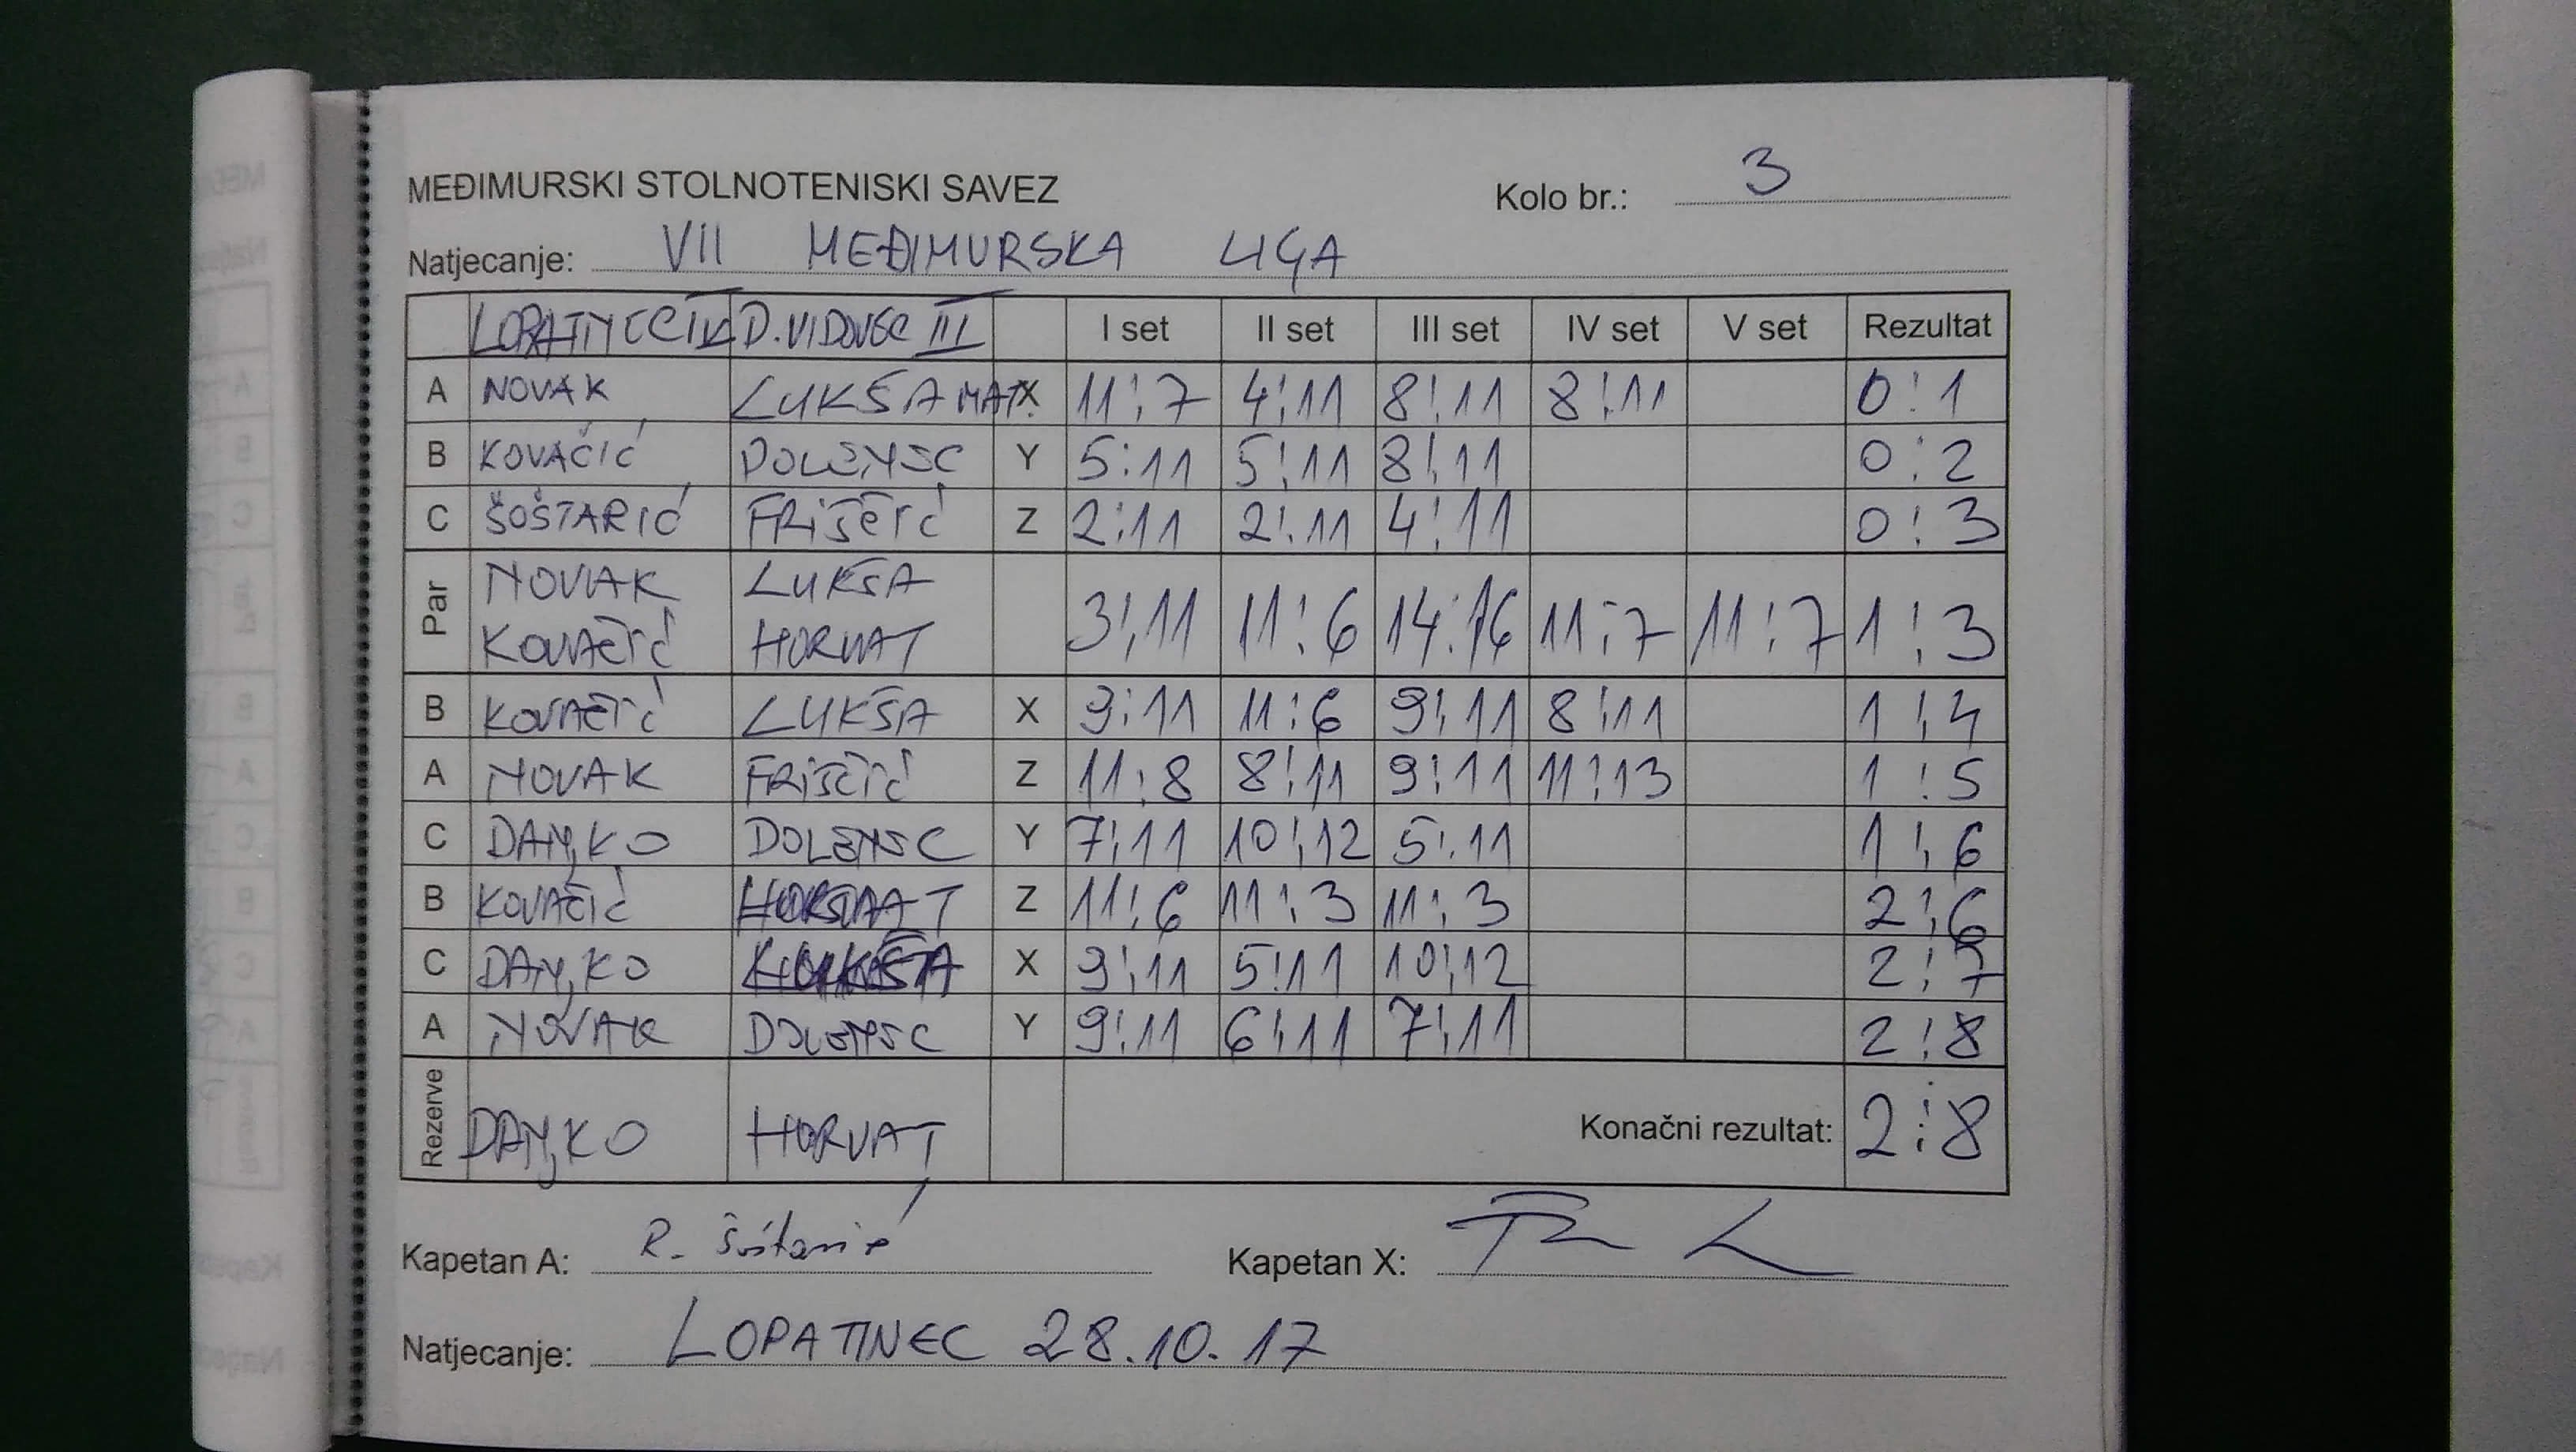 MEĐIMURSKI STOLNOTENISKI SAVEZ
Kolo br.: 3
Natjecanje: VII MEĐIMURSKA LIGA
LOPATINEC IV D. VIDOVEC III I set II set III set IV set V set Rezultat
A NOVAK LUKŠA MAT. X 11:7 4:11 8:11 8:11 0:1
B KOVAČIĆ DOLENEC Y 5:11 5:11 8:11 0:2
C ŠOŠTARIĆ FRIŠČIĆ Z 2:11 2:11 4:11 0:3
Par NOVAK KOVAČIĆ LUKŠA HORVAT 3:11 11:6 14:16 11:7 11:7 1:3
B KOVAČIĆ LUKŠA X 9:11 11:6 9:11 8:11 1:4
A NOVAK FRIŠČIĆ Z 11:8 8:11 9:11 11:13 1:5
C DANKO DOLENEC Y 7:11 10:12 5:11 1:6
B KOVAČIĆ HORVAT Z 11:6 11:3 11:3 2:6
C DANKO LUKŠA X 9:11 5:11 10:12 2:7
A NOVAK DOLENEC Y 9:11 6:11 7:11 2:8
Rezerve DANKO HORVAT Konačni rezultat: 2:8
Kapetan A: R. Šoštarić Kapetan X:
Natjecanje: LOPATINEC 28.10.17